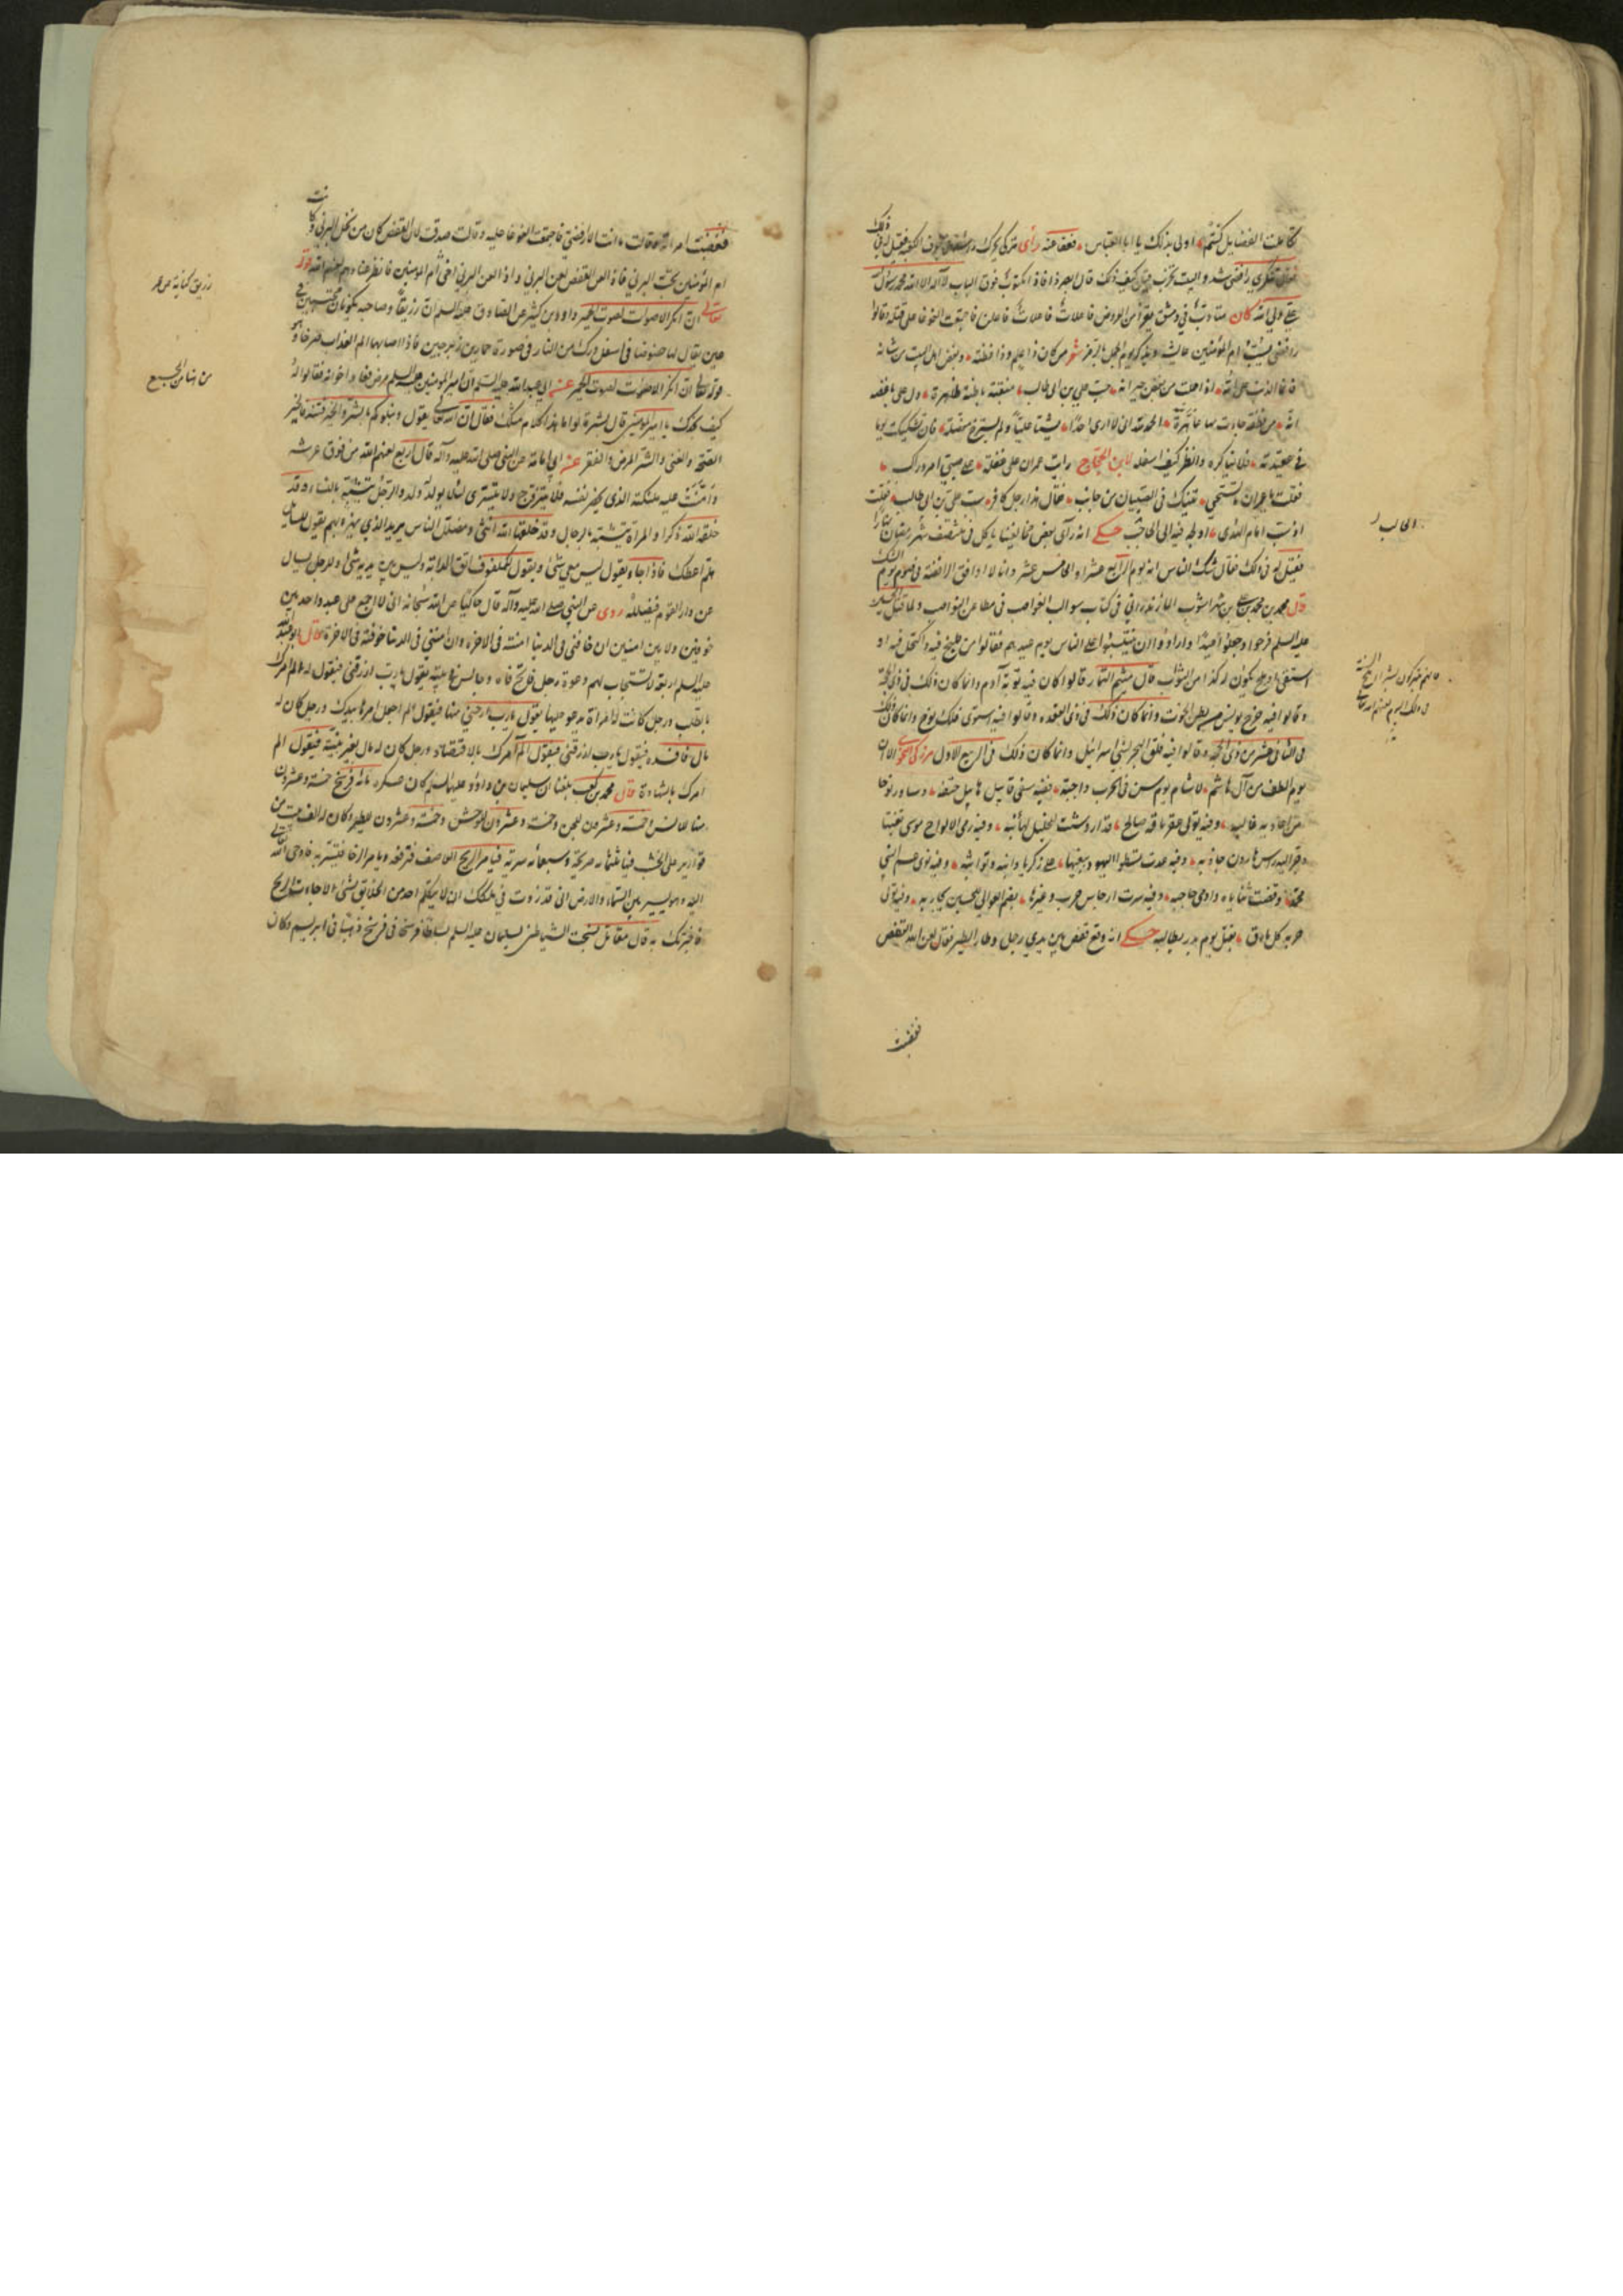 كانت الفضايل كنتم اولى بذلك يا ابا العباس فعفا عنه رأى تركي فوق الكوة فقيل له في ذلك
رافضي شد والبيت بخرب فقيل كيف ذلك قال ابصر ذا فاذا مكتوب فوق الباب لا اله الا الله محمد رسول الله
علي ولي الله كان متادب في دمشق يقرأ من العروض فاعلات فاعلات فاعلن فاجتمعت الغوغا على قتله وقالوا
رافضي يسب ام المؤمنين عايشة ويذكر يوم الجمل بالرمز شعر من كان ذا علم وذا فطنة وبغض اهل البيت من شانه
فانما الذنب على امه اذ حملت من بعض جيرانه حب علي بن ابي طالب منقبة باطنة ظاهرة دل على باغضه
انه من نطفة جاءت بها عاهرة الحمد لله اني لا ارى احدا يشنا عليا ولم يسترخ مفسله فان تشككت يوما
في عقيدته فلا تناكره وانظر كيف اسفله لابن الحجاج رايت عمران على غفلة على صبي امرد رك
فقلت يا عمران لا تستحي تنيك في الصبيان من جانب فقال هذا رجل كافر سب علي بن ابي طالب فقلت
اذ سب امام الهدى اولجه فيه الى الحاجب حكي انه رأى بعض مخالفينا ياكل في منتصف شهر رمضان نهارا
فقيل له في ذلك فقال شك الناس انه يوم الرابع عشر او الخامس عشر وانا لا اوافق الرافضة في صوم يوم الشك
قال محمد بن علي بن شهراشوب المازندراني في كتاب سوالب الغواصب في مطاعن النواصب ولما قتل الحسين
عليه السلم فرحوا وجعلوا عيدا وارادوا ان يثبتوا على الناس يوم عيدهم فقالوا من طبخ فيه واكتحل فيه او
استقى او بلغ يكون له كذا من الثواب قال ميثم التمار قالوا كان فيه توبة آدم وانما كان ذلك في ذي الحجة
وقالوا فيه خرج يونس من بطن الحوت وانما كان ذلك في ذي القعدة وقالوا فيه استوى فلك نوح وانما كان ذلك
في الثاني عشر من ذي الحجة وقالوا فيه فلق البحر لبني اسرائيل وانما كان ذلك في الربيع الاول مركي النحوي الا ان
يوم الطف من آل هاشم لاشام يوم سن في الحرب واجبه ففيه سقى قابيل هابيل حتفه وساور نوحا
من اعاديه غالبه وفيه تولى عقر ناقة صالح قدار وشبت للخليل لهائبه وفيه رمى الالواح موسى تغيضا
وجر اليه راس هارون جاذبه وفيه عدت تسطو اليهود ببغيها على زكريا وابنه وتواثبه وفيه نوى جسم النبي
محمد وقفت ثناياه وادمى حاجبه وفيه سرت ارجاس حرب وغيرها بغيم العوالي للحسين تحاربه وفيه تولى
حربه كل مارق بقتل يوم بدر يطالبه حكي انه وقع قفص بين يدي رجل وطار الطير فقال لعن الله القفص
فغضبت
الحالب ل
فغضبت امرأته فقالت انت الرافضي فاجتمعت الغوغا عليه وقالت صدق لان القفص كان من نخل البرني وكانت
ام المؤمنين تحب البرني فاذا لعن القفص لعن البرني واذا لعن البرني اخزى ام المؤمنين فانظر عنادهم لعنهم الله قوله
تعالى ان انكر الاصوات لصوت الحمير داود بن كثير عن الصادق عليه السلم ان رزيقا وصاحبه يكونان محتبسين في
عين يقال لها صنوضا في اسفل درك من النار في صورة حمارين زبرجين فاذا اصابهما الم العذاب صرخا وهو
قوله تعالى ان انكر الاصوات لصوت الحمير عن ابي عبد الله عليه السلم ان امير المؤمنين عليه السلم مرض فعاده اخوانه فقالوا له
كيف نجدك يا امير المؤمنين قال بشر قالوا ما هذا كلام مثلك فقال ان الله تعالى يقول ونبلوكم بالشر والخير فتنة فالخير
الصحة والغنى والشر المرض والفقر عن ابي امامة عن النبي صلى الله عليه وآله قال اربع لعنهم الله من فوق عرشه
وامنت عليه ملئكته الذي يحصر نفسه فلا يتزوج ولا يتسرى لئلا يولد له ولد والرجل يتشبه بالنساء وقد
خلقه الله ذكرا والمراة تتشبه بالرجال وقد خلقها الله انثى ومضلل الناس يريد الذي يهزء بهم يقول للمسكين
هلم اعطك فاذا جاء يقول ليس معي شئ ويقول للمكفوف اتق الدابة وليس بين يديه شئ والرجل يسال
عن دار القوم فيضلله روى عن النبي صلى الله عليه وآله قال حاكيا عن الله سبحانه اني لا اجمع على عبد واحد بين
خوفين ولا بين امنين ان خافني في الدنيا امنته في الاخرة وان امنني في الدنيا خوفته في الاخرة قال ابو عبد الله
عليه السلم اربعة لا تستجاب لهم دعوة رجل فاتح فاه جالس في بيته يقول يا رب ارزقني فيقول له الم امرك
بالطلب ورجل كانت له امراة يدعو عليها يقول يا رب ارحني منها فيقول الم اجعل امرها بيدك ورجل كان له
مال فافسده فيقول يا رب ارزقني فيقول الم آمرك بالاقتصاد ورجل كان له مال بغير بينة فيقول الم
امرك بالشهادة قال محمد بن كعب بلغنا ان سليمان بن داود عليهما السلم كان عسكره مائة فرسخ خمسة وعشرون
منها للانس وخمسة وعشرون للجن وخمسة وعشرون للوحش وخمسة وعشرون للطير وكان له الف بيت من
قوارير على الخشب فيها ثلثمائه صريحة وسبعمائه سرية فيامر الريح العاصف فترفعه ويامر الرخا فتسير به فاوحى الله تعالى
اليه وهو يسير بين السماء والارض اني قد زدت في ملكك ان لا يتكلم احد من الخلايق بشئ الا جاءت الريح
فاخبرتك به قال مقاتل نسجت الشياطين لسليمان عليه السلم بساطا فرسخا في فرسخ ذهبا في ابريسم وكان
زريق كناية عن